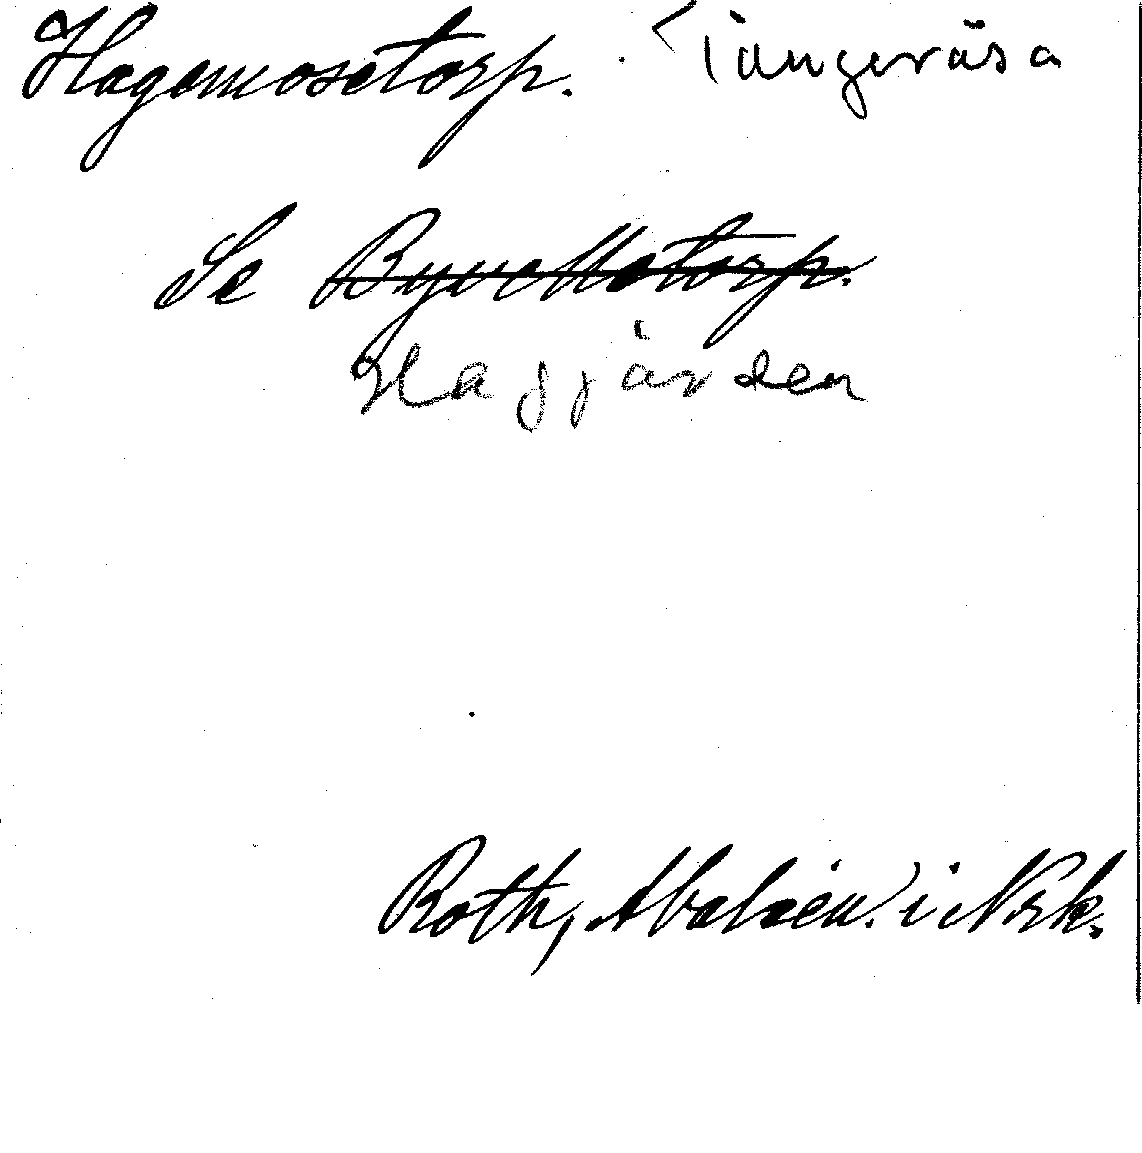 Hagamosetorp. < Tångeråsa
Se Byvallatorp.
Hagjärden
Roth, Abalien. i Nrk.